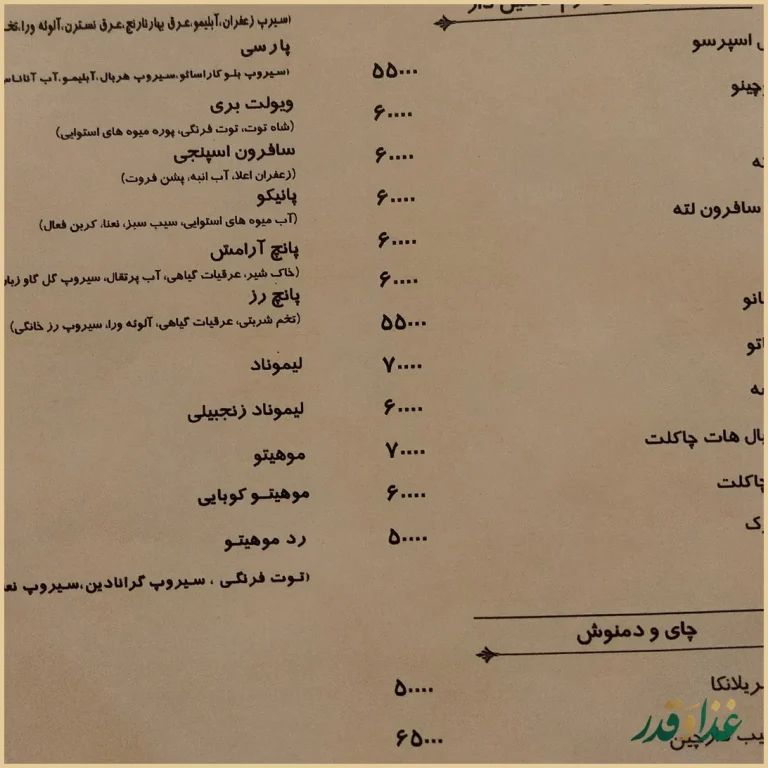 دار
اسپرسو
۵۵۰۰۰
۶۰۰۰۰
۶۰۰۰۰
سافرون لته
۶۰۰۰۰
۶۰۰۰۰
۶۰۰۰۰
۵۵۰۰۰
۷۰۰۰۰
۶۰۰۰۰
هات چاکلت
۷۰۰۰۰
۶۰۰۰۰
۵۰۰۰۰
چای و دمنوش
۵۰۰۰۰
۶۵۰۰۰
(سیرپ زعفران،آبلیمو،عرق بهارنارنج،عرق نسترن،آلوئه ورا،
پارسی
(سیروپ بلو کاراسائو،سیروپ هربال،آبلیمو،آب
ویولت بری
(شاه توت، توت فرنگی، پوره میوه های استوایی)
سافرون اسپنجی
(زعفران اعلا، آب انبه، پشن فروت)
پانیکو
(آب میوه های استوایی، سیب سبز، نعنا، کربن فعال)
پانچ آرامش
(خاک شیر، عرقیات گیاهی، آب پرتقال، سیروپ گل گاو
پانچ رز
(تخم شربتی، عرقیات گیاهی، آلوئه ورا، سیروپ رز خانگی)
لیموناد
لیموناد زنجبیلی
موهیتو
موهیتو کوبایی
رد موهیتو
(توت فرنگی ، سیروپ گرانادین،سیروپ
غذا قدر